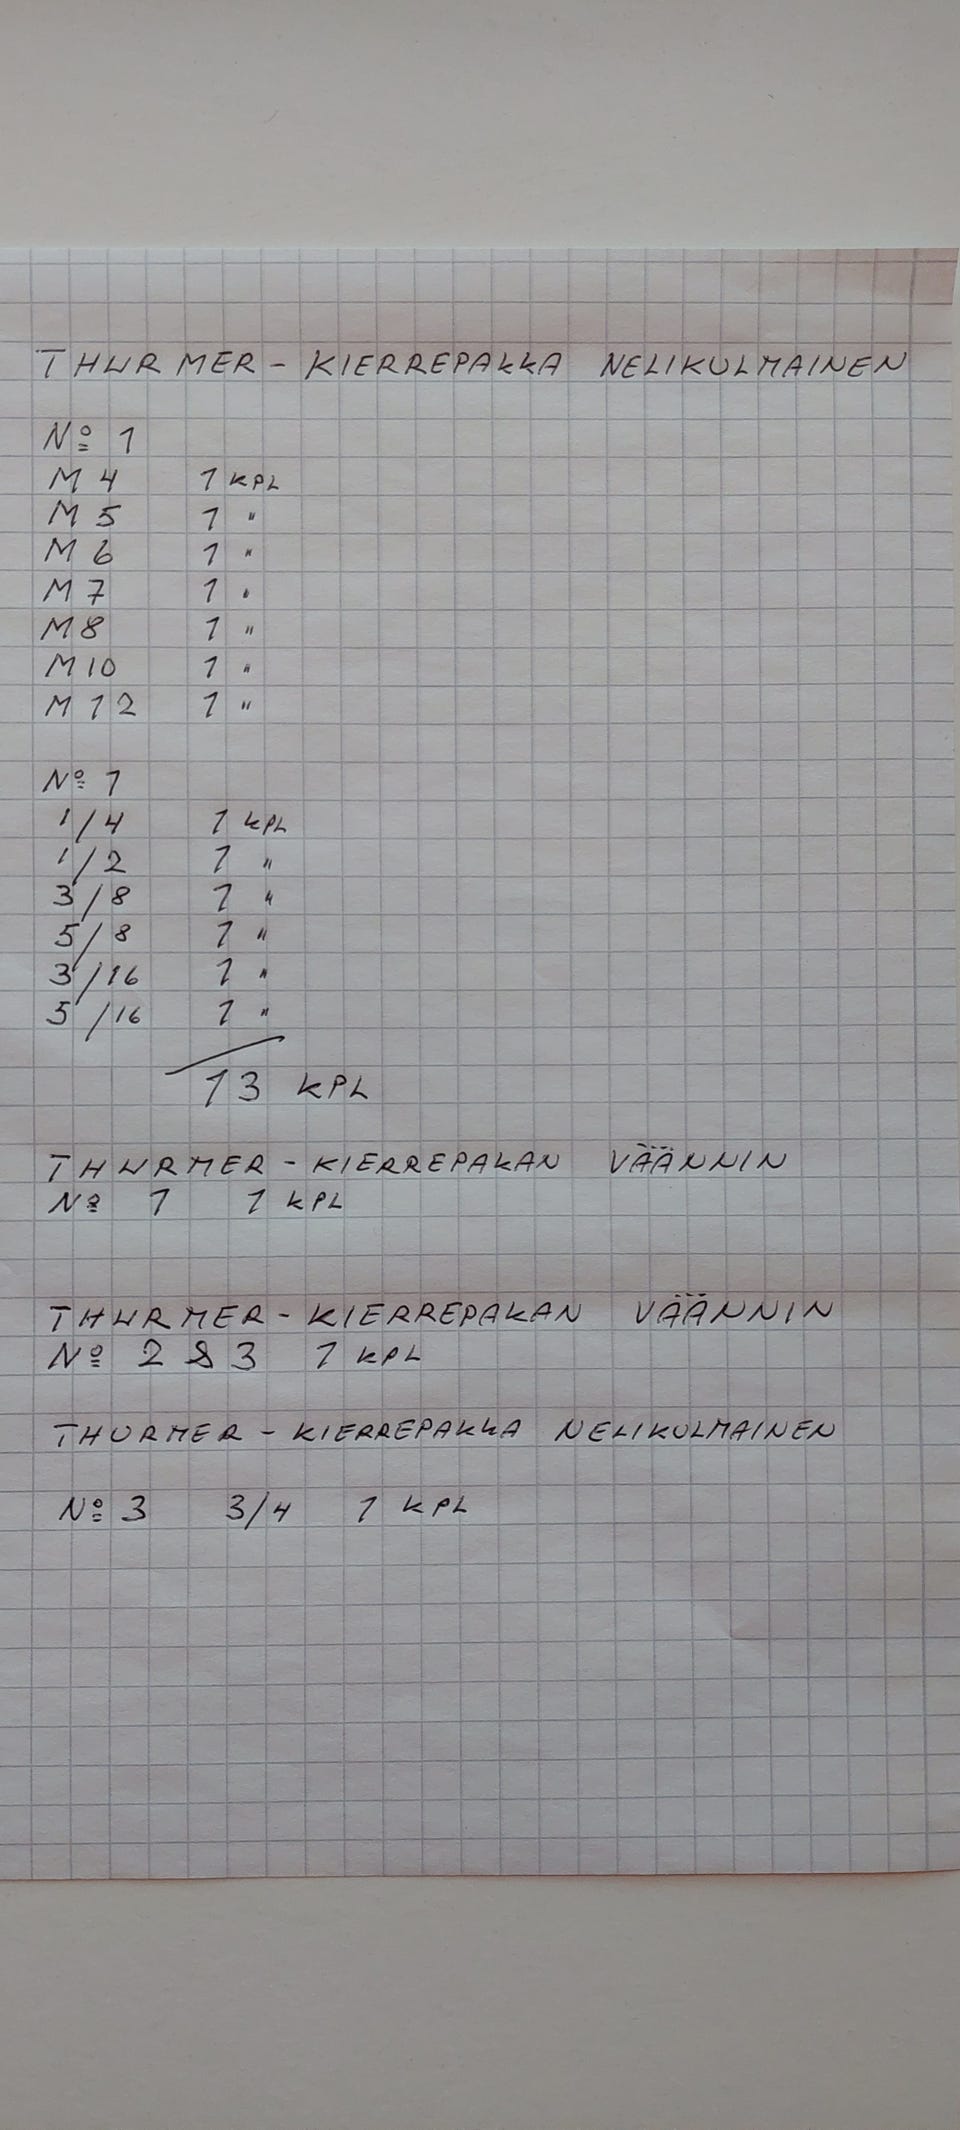 THURMER - KIERREPAKKA NELIKULMAINEN
Nº 1
M 4 1 KPL
M 5 1 "
M 6 1 "
M 7 1 "
M 8 1 "
M 10 1 "
M 12 1 "
Nº 1
1/4 1 KPL
1/2 1 "
3/8 1 "
5/8 1 "
3/16 1 "
5/16 1 "
13 KPL
THURMER - KIERREPAKAN VÄÄNNIN
Nº 1 1 KPL
THURMER - KIERREPAKAN VÄÄNNIN
Nº 2 & 3 1 KPL
THURMER - KIERREPAKKA NELIKULMAINEN
Nº 3 3/4 1 KPL